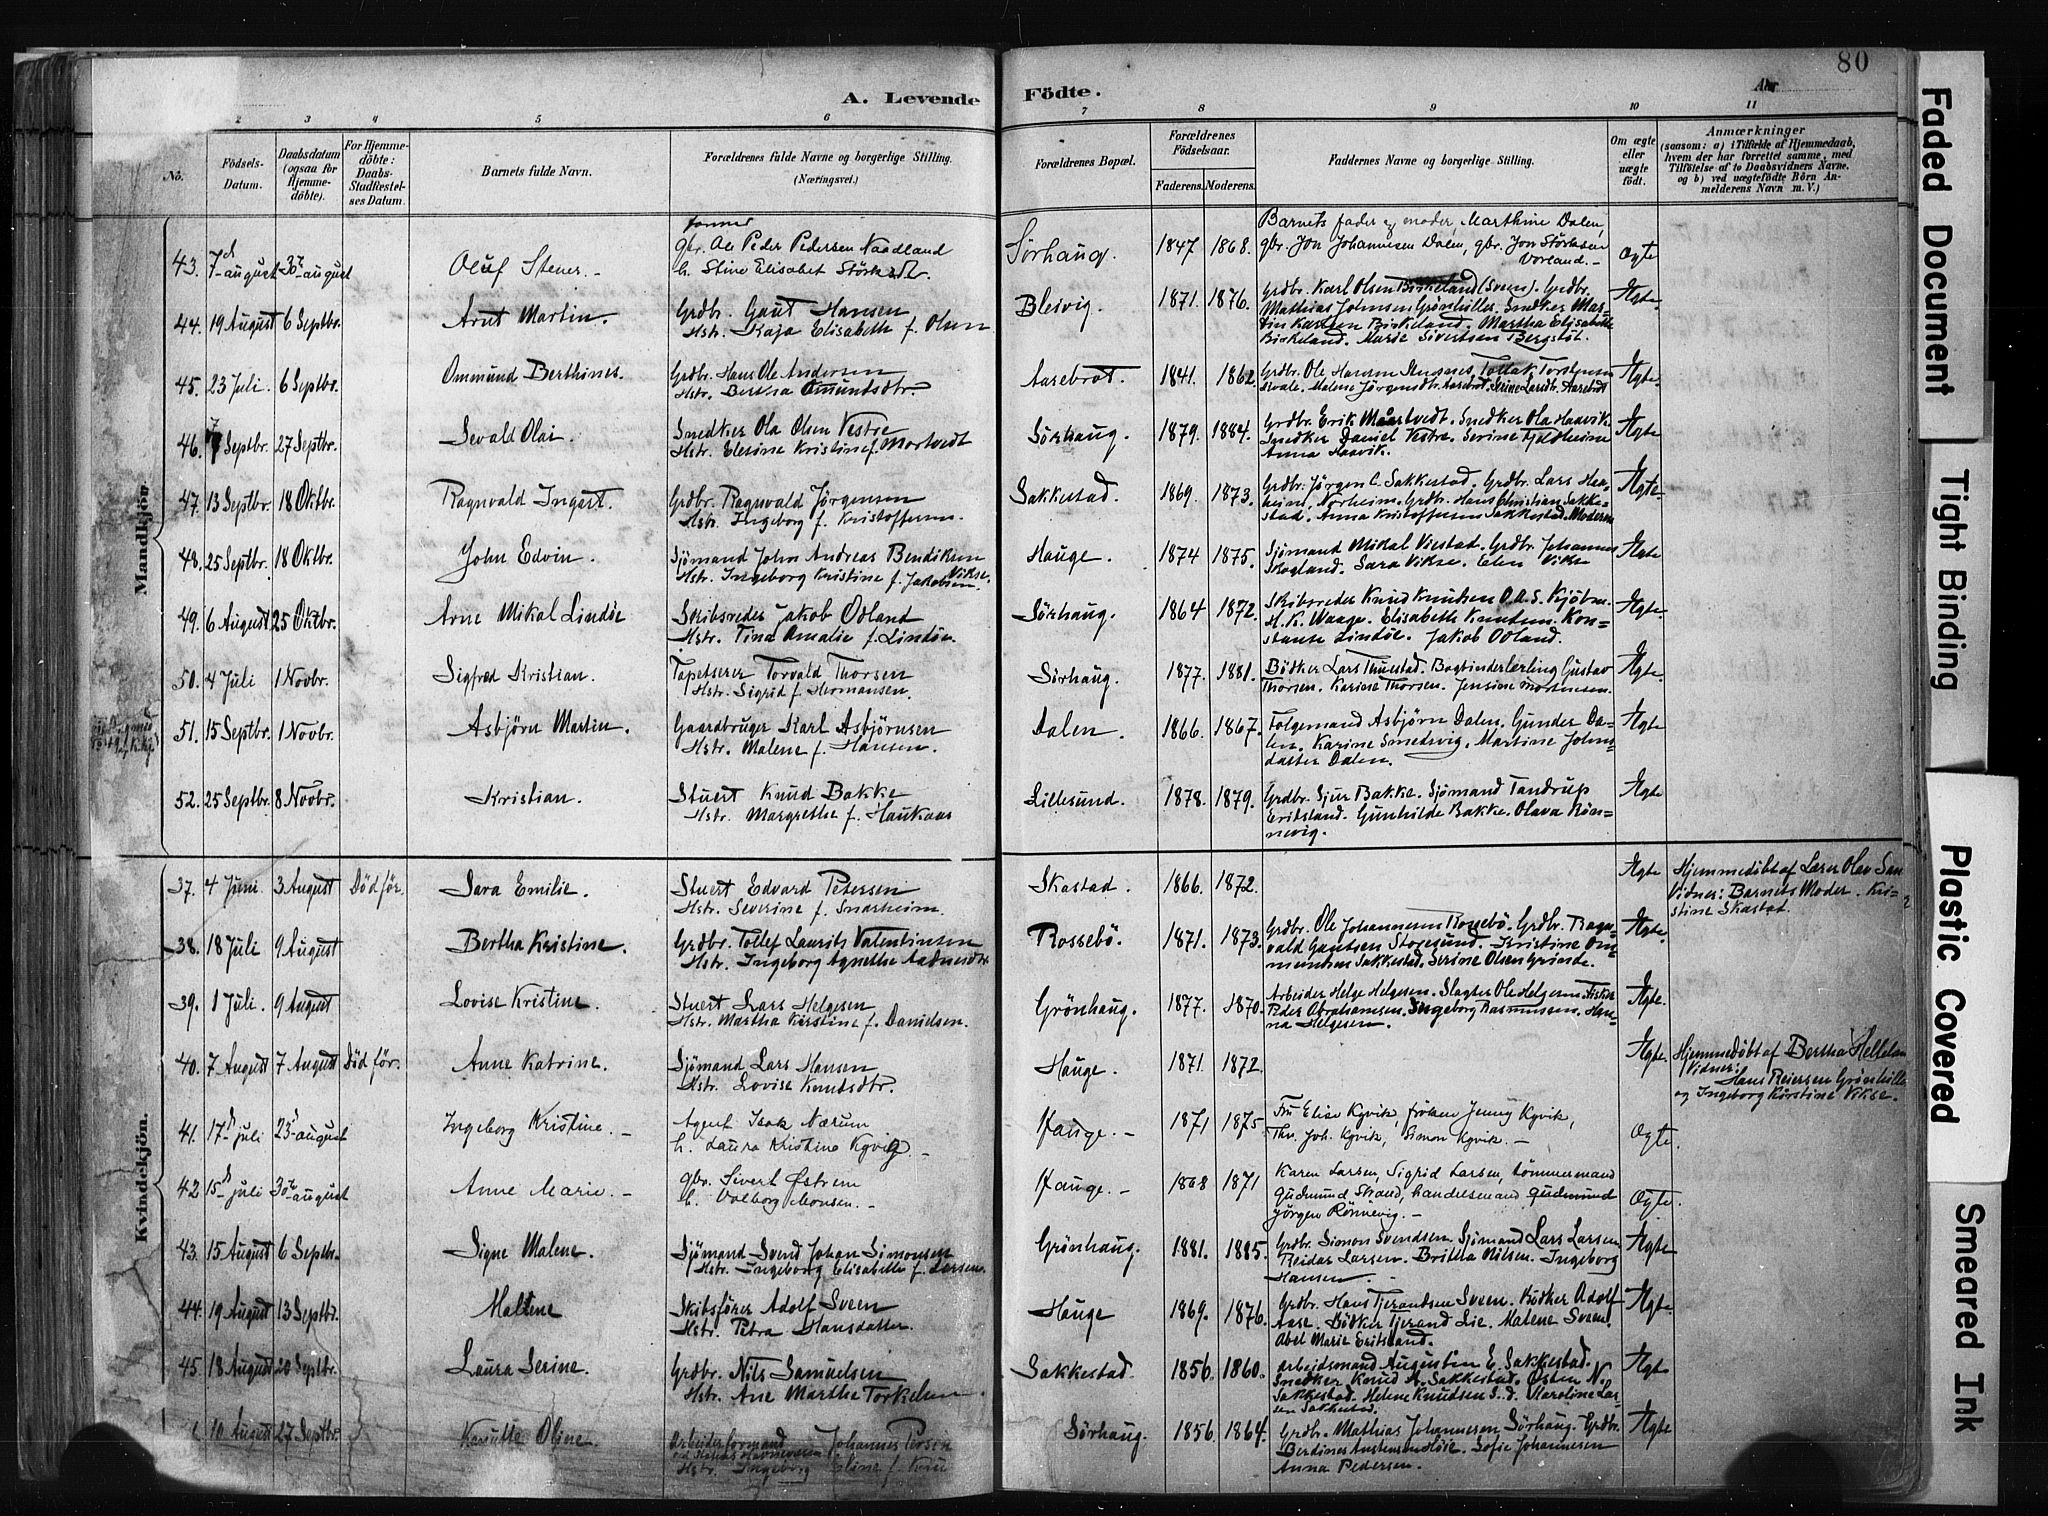 80
A. Levende Födte.
Aar
2 3 4 5 6 7 8 9 10 11
No.
Födsels-Datum.
Daabsdatum (ogsaa for Hjemme-döbte).
For Hjemme-döbte: Daabs-Stadfæstel-ses Datum.
Barnets fulde Navn.
Forældrenes fulde Navne og borgerlige Stilling.
(Næringsvei.)
Forældrenes Bopæl.
Forældrenes Födselsaar.
Faderens. Moderens.
Faddernes Navne og borgerlige Stilling.
Om ægte eller uægte födt.
Anmærkninger
(saasom: a) i Tilfælde af Hjemmedaab,
hvem der har forrettet samme, med
Tilföielse af to Daabsvidners Navne.
og b) ved uægtefödte Börn An-
melderens Navn m. V.)
Mandkjön.
43. 7 august 30 august Oluf Stener. Gbr. Ole Peder Pedersen Naadland
h. Stine Elisabet Sørhaug. 1847 1868. Barnets fader og moder, Marthine Dalen,
gbr. Jon Johannesen Dalen, gbr. Jon
Vorland. Ægte
44. 19 August 6 Septbr. Arnt Martin. Grdbr. Gaut Hansen
Hstr. Kaja Elisabeth f. Olsen Bleivig. 1871. 1876. Grdbr. Karl Olsen Birkeland (Sveen). Grdbr.
Mathias Johnsen Grønhiller. Snedker Mar-
tin Karsen Birkeland. Martha Elisabeth
Birkeland. Marie Sivertsen Bergstøl. Ægte.
45. 23 Juli. 6 Septbr. Ommund Berthines. Grdbr. Hans Ole Andersen
Hstr. Bertha Omundsdtr. Aarebrot. 1841. 1862. Grdbr. Ole Hansen Tollak Torstensen
Malene Jørgensdtr. Aarebrot. Serine Larsdtr. Aarebrot Ægte.
46. 7 Septbr. 27 Septbr. Sevald Olai. Snedker Ola Olsen Vestre
Hstr. Elesine Kristine f. Mortvedt Sørhaug. 1879. 1884. Grdbr. Erik Maartvedt. Snedker Ola Haavik.
Snedker Daniel Vestre. Serine Fjeldheim
Anna Haavik. Ægte
47. 13 Septbr. 18 Oktbr. Ragnvald Ingart. Grdbr. Ragnvald Jørgensen
Hstr. Ingeborg f. Kristoffersen. Sakkestad. 1869. 1873. Grdbr. Jørgen C. Sakkestad. Grdbr. Lars
Norheim. Grdbr. Hans Christian Sakke-
stad. Anna Kristoffersen Sakkestad. Moderen Ægte
48. 25 Septbr. 18 Oktbr. John Edvin. Sjömand John Andreas Bendiksen
Vikse.
Hstr. Ingeborg Kristine f. Jakobsen Hauge. 1874 1875. Sjömand Mikal Viestad. Grdbr. Johannes
Skogland. Sara Vikse. Elen Vikse Ægte
49. 6 August 25 Oktbr. Arne Mikal Lindöe Skibsreder Jakob Odland
Hstr. Tina Amalie f. Lindöe. Sørhaug. 1864 1872. Skibsreder Knud Knutsen O.A.S. Kjøbm.
H.K. Waage. Elisabeth Knutsen. Kon-
stanse Lindöe. Jakob Odland. Ægte.
50. 4 Juli 1 Novbr. Sigfred Kristian. Tapetserer Torvald Thorsen
Hstr. Sigrid f. Hermansen. Sørhaug. 1877. 1881. Bödker Lars Thuestad. Bogbinderlærling Gustav
Thorsen. Karine Thorsen. Jensine Mortensen. Ægte.
51. 15 Septbr. 1 Novbr. Asbjörn Martin. Gaardbruger Karl Asbjörnsen
Hstr. Malene f. Hansen. Dalen. 1866. 1867. Folgemand Asbjörn Dalen. Gunder Da-
len. Karine Smedsvig. Martine Johns-
datter Dalen. Ægte
52. 25 Septbr. 8 Novbr. Kristian. Stuert Knud Bakke
Hstr. Margrethe f. Haukaas Lillesund. 1878. 1879. Grdbr. Sjur Bakke. Sjömand Tandrup
Eritsland. Gunhilde Bakke. Olava Rön-
nevig. Ægte
Kvindekjön.
37. 4 Juni. 3 August Död för. Sara Emilie. Stuert Edvard Petersen
Hstr. Severine f. Snarheim. Skastad. 1866. 1872. Ægte Hjemmedöbt af Lærer Olav San
Vidner: Barnets Moder. Kri-
stine Skastad.
38. 18 Juli 9 August Bertha Kristine. Grdbr. Tollef Laurits Valentinsen
Hstr. Ingeborg Agnethe Aadnesdtr. Rossebö. 1871. 1873. Grdbr. Ole Johannesen Rossebö. Grdbr. Ragn-
vald Gautsen Storesund. Kristine Om-
mundsen Sakkestad. Serine Olsen Grinde. Ægte.
39. 1 Juli. 9 August Lovise Kristine. Stuert Lars Helgesen
Hstr. Martha Kirstine f. Danielsen. Grönhaug. 1877. 1870. Arbeider Helge Helgesen. Slagter Ole Helgesen. Fisker
Peder Abrahamsen. Ingeborg Rasmussen. Han-
na Helgesen. Ægte.
40. 7 August 7 August Död för. Anne Katrine. Sjömand Lars Hansen
Hstr. Lovise Knudsdtr. Hauge. 1871. 1872. Ægte. Hjemmedöbt af Bertha Helleland
Vidner:
Hans Reiersen Grönhille
og Ingeborg Kirstine Vikse.
41. 17 juli 23 august Ingeborg Kristine. Agent Isak Nærum
h. Laura Kristine Kyvig. Hauge. 1871 1875. Fru Elise Kyvik, frøken Jenny Kyvik,
Thv. Joh. Kyvik, Simon Kyvik. Ægte.
42 15 juli 30 august Anne Marie. Gbr. Sivert Østrem
h. Valborg Monsen. Hauge. 1868 1871 Karen Larsen, Sigrid Larsen, tømmermand
Gudmund Skaad, handelsmand Gudmund
Jörgen Rönnevig. Ægte.
43. 15 August 6 Septbr. Signe Malene. Sjömand Svend Johan Simonsen
Hstr. Ingeborg Elisabeth f. Larsen. Grönhaug. 1881. 1885. Grdbr. Simon Svendsen. Sjömand Lars Larsen
Reidar Larsen. Britha Nilsen. Ingeborg
Hansen. Ægte
44. 19 August 13 Septbr. Malene Skibsförer Adolf Sveen
Hstr. Petra Hansdatter. Hauge 1869. 1876. Grdbr. Hans Tjerandsen Sveen. Bödker Adolf
Aase. Bödker Tjerand Lie. Malene Sveen.
Abel Marie Eritsland. Ægte
45. 18 August 20 Septbr. Laura Serine. Grdbr. Nils Samuelsen
Hstr. Ane Marthe Torkelsen. Sakkestad. 1856. 1860. Arbeidsmand Augustin E. Sakkestad.
Snedker Knud A. Sakkestad. Östen N.
Sakkestad. Helene Knudsen S.d. Karoline Lar-
sen Sakkestad. Ægte
10 August 27 Septbr. Oline Arbeiderformand Johannes Persen
Hstr. Ingeborg Sørhaug. 1856. 1864. Grdbr. Mathias Johannesen Sörhaug. Grdbr.
Berdines Austensen Höie. Sofie Johannesen
Anna Pedersen. Ægte
Faded Document
Tight Binding
Plastic Covered
Smeared Ink